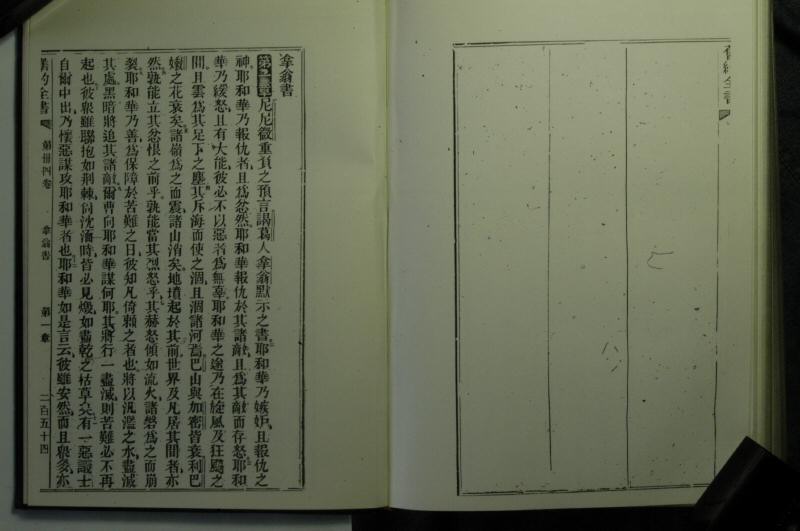 舊約全書
拿翁書
第一章尼尼微重負之預言謁葛人拿翁默示之書耶和華乃嫉妒且報仇之
神耶和華乃報仇者且爲忿然耶和華報仇於其諸敵且爲其敵而存怒耶和
華乃緩怒且有大能彼必不以惡者爲無辜耶和華之途乃在旋風及狂飈之
間且雲爲其足下之塵其斥海而使之涸且涸諸河焉巴山與加密皆衰利巴
嫩之花衰矣諸嶺爲之而震諸山消矣地墳起於其前世界及凡居其間者亦
然孰能立其忿恨之前乎孰能當其烈怒乎其赫怒傾如流火諸磐爲之而崩
裂耶和華乃善爲保障於苦難之日彼知凡倚賴之者也將以汎濫之水盡滅
其處黑暗將追其諸敵爾曹向耶和華謀何耶其將行一盡滅則苦難必不再
起也彼衆雖聯抱如荆棘尙沈湎時皆必見燬如盡乾之枯草矣有一惡議士
自爾中出乃懷惡謀攻耶和華者也耶和華如是言云彼雖安然而且衆多亦
舊約全書 第卅四卷 拿翁書 第一章 二百五十四